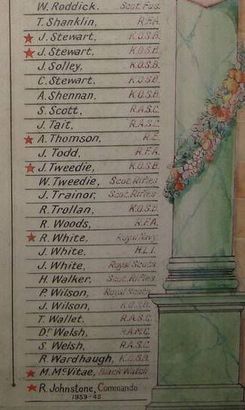 W. Roddick. Scot. Fus.
T. Shanklin, R.F.A.
★ J. Stewart, K.O.S.B.
★ J. Stewart, K.O.S.B.
J. Solley, K.O.S.B.
C. Stewart, K.O.S.B.
A. Shennan, K.O.S.B.
S. Scott, R.A.S.C.
J. Tait, R.A.S.C.
★ A. Thomson, R.E.
J. Todd, R.F.A.
★ J. Tweedie, K.O.S.B.
W. Tweedie, Scot. Rifles
J. Trainor, Scot. Rifles
R. Trollan, K.O.S.B.
R. Woods, R.F.A.
★ R. White, Royal Navy
J. White, H.L.I.
J. White, Royal Scots
H. Walker, Scot. Rifles
P. Wilson, Royal
J. Wilson, K.O.S.B.
T. Wallet, R.A.S.C.
Dr Welsh, R.A.M.C.
S. Welsh, R.A.S.C.
R. Wardhaugh, K.O.S.B.
★ M. McVitae, Black Watch
★ R. Johnstone, Commando
1939-45